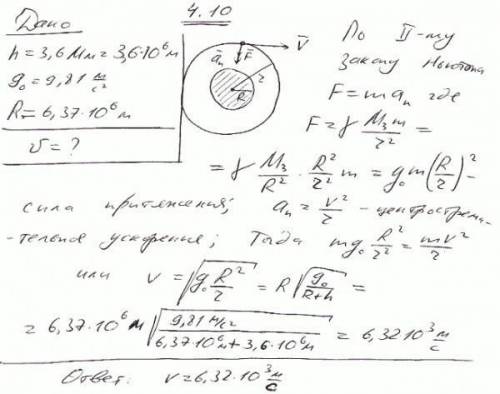 4.10
Дано
h = 3,6 Мм = 3,6·10⁶ м
g₀ = 9,81 м/с²
R = 6,37·10⁶ м
v = ?
a⃗ₙ F⃗ V⃗ r R
По II-му
закону Ньютона
F = maₙ где
F = γ M₃m/r² =
= γ M₃/R² · R²/r² m = g₀m(R/r)² -
сила притяжения; aₙ = v²/r - центростреми-
-тельное ускорение; Тогда mg₀ R²/r² = mv²/r
или v = √(g₀ R²/r) = R√(g₀/(R+h)) =
= 6,37·10⁶ м √(9,81 м/с² / (6,37·10⁶ м + 3,6·10⁶ м)) = 6,32 10³ м/с
Ответ: v = 6,32·10³ м/с